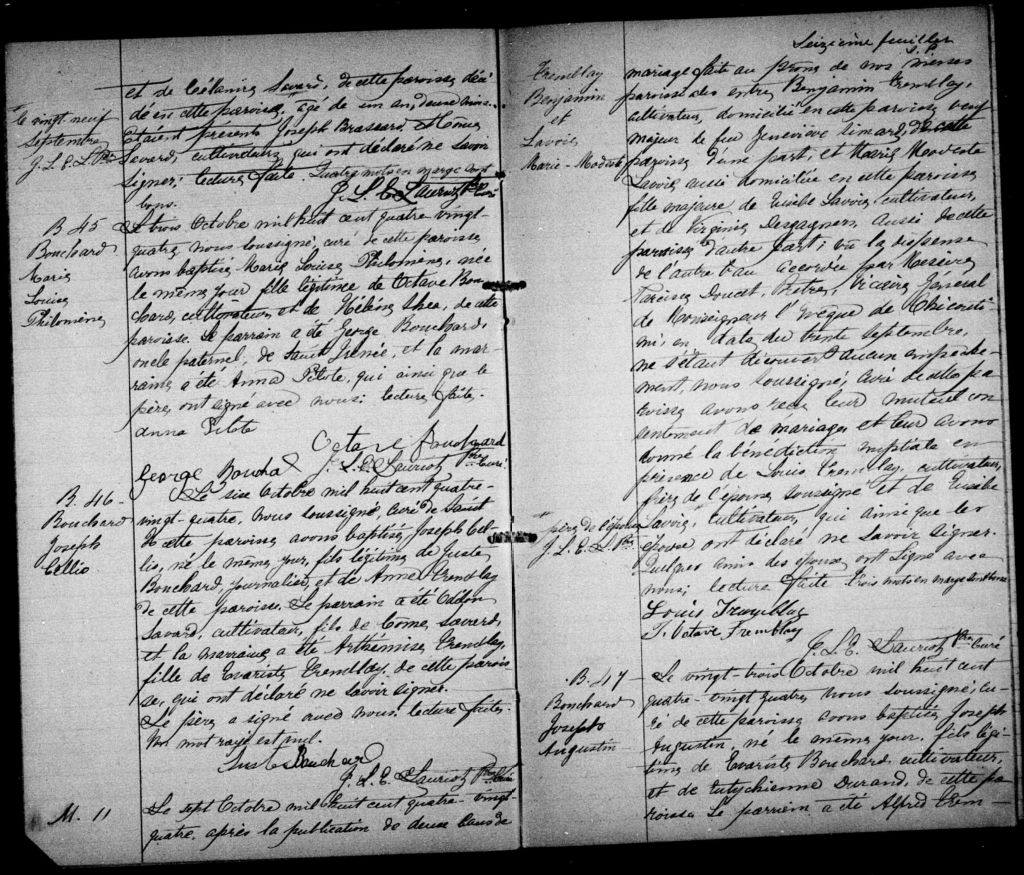 et de Célanire Savard, de cette paroisse, décé
dé en cette paroisse, agé de un an, deux mois.
Étaient présents Joseph Brassard, et Côme
Savard, cultivateurs, qui ont déclaré ne savoir
signer; lecture faite. Quatre mots en marge sont
bons.
J. L. E. Lauriot Ptre Curé
le vingt neuf
Septembre
J. L. E. L. Ptre
B 45
Bouchard
Marie
Louise
Philomène
Le trois Octobre mil huit cent quatre-vingt-
quatre nous soussigné, curé de cette paroisse
avons baptisé Marie Louise Philomène, née
le même jour fille légitime de Octave Bou
chard, cultivateur, et de Hélène, de cette
paroisse. Le parrain a été George Bouchard,
oncle paternel, de Saint Irénée, et la mar-
raine a été Anna Pilote, qui ainsi que le
père, ont signé avec nous; lecture faite.
Anna Pilote
Octave Bouchard
George Bouchard J. L. E. Lauriot Ptre Curé
B. 46
Bouchard
Joseph
Cellio
Le six Octobre mil huit cent quatre-
vingt-quatre, nous soussigné curé de
de cette paroisse avons baptisé Joseph Cel-
lio, né le même jour, fils légitime de
Bouchard, journalier, et de Anne Tremblay
de cette paroisse. Le parrain a été Odilon
Savard, cultivateur, fils de Côme Savard,
et la marraine a été Arthémise Tremblay,
fille de Evariste Tremblay, de cette parois-
se, qui ont déclaré ne savoir signer.
Le père a signé avec nous, lecture faite.
Un mot rayé est nul.
Bouchard
J. L. E. Lauriot Ptre Curé
M. 11
Le sept Octobre mil huit cent quatre-vingt-
quatre après la publication de deux bans de
Seizième feuillet
Tremblay
Benjamin
et
Lavoie
Marie-Modeste
mariage faite au prône de nos messes
paroissiales entre Benjamin Tremblay,
cultivateur, domicilié en cette paroisse, veuf
majeur de feu Geneviève Simard, de cette
paroisse d'une part, et Marie Modeste
Lavoie aussi domiciliée en cette paroisse
fille majeure de Eusèbe Lavoie, cultivateur,
et de Virginie Desgagnés, aussi de cette
paroisse d'autre part; vu la dispense
de l'autre ban accordée par Messire
Narcisse Doucet, Prêtre, Vicaire Général
de Monseigneur l'Evêque de Chicouti
mi, en date du trente septembre,
ne s'étant découvert aucun empêche-
ment, nous soussigné, curé de cette pa
roisse avons reçu leur mutuel con
sentement de mariage, et leur avons
donné la bénédiction nuptiale en
présence de Louis Tremblay, cultivateur,
père de l'époux soussigné et de Eusèbe
Lavoie, cultivateur, qui ainsi que les
époux ont déclaré ne savoir signer.
Quelques amis des époux, ont signé avec
nous; lecture faite. Trois mots en marge sont bons
père de l'épouse
J. L. E. L. Ptre
Louis Tremblay
J. Octave Tremblay
J. L. E. Lauriot Ptre Curé
B. 47
Bouchard
Joseph
Augustin
Le vingt-trois Octobre mil huit cent
quatre-vingt quatre, nous soussigné, cu-
ré de cette paroisse avons baptisé Joseph
Augustin, né le même jour, fils légi-
time de Evariste Bouchard cultivateur,
et de Eutychienne Durand, de cette pa
roisse. Le parrain a été Alfred Trem-